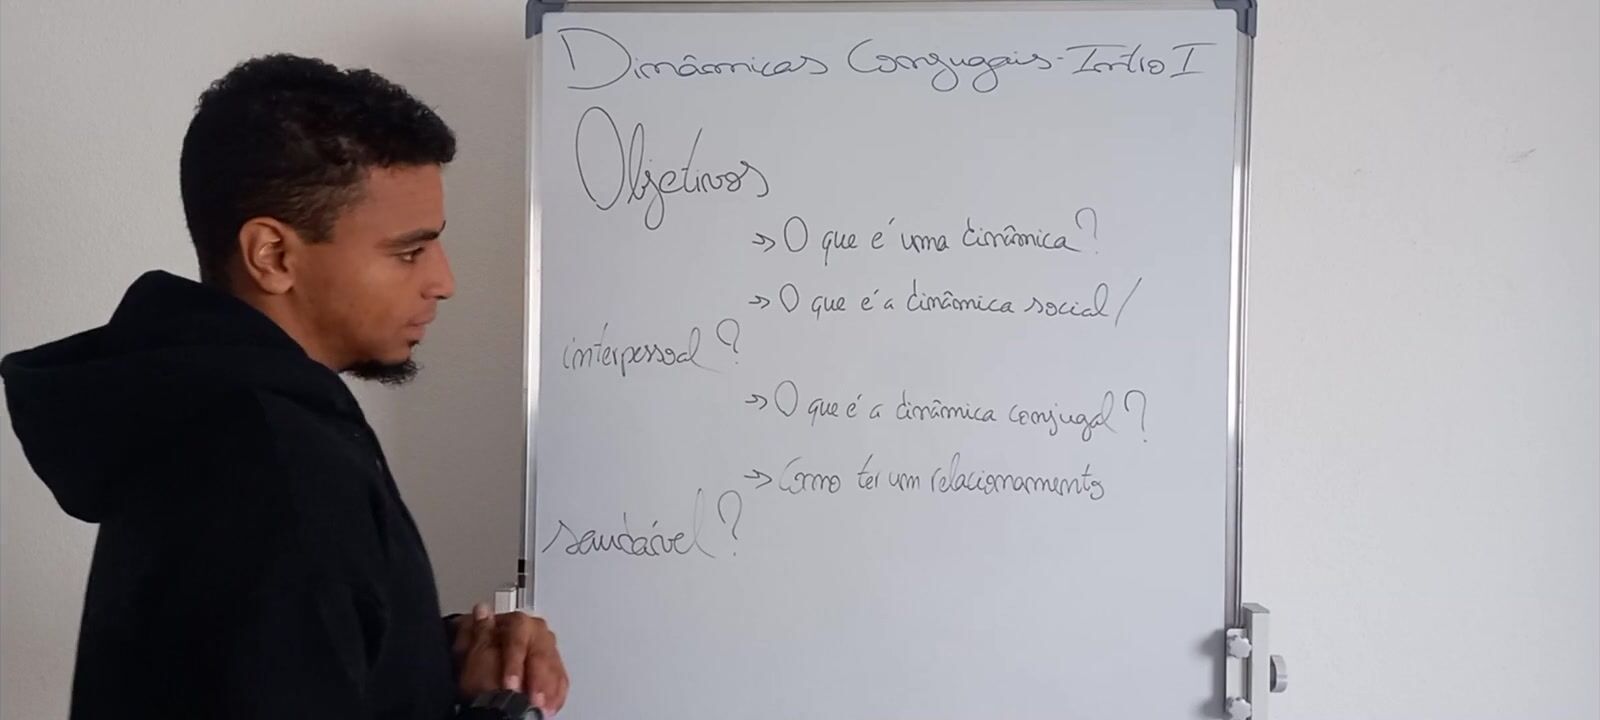 Dinâmicas Conjugais - Intro I
Objetivos
=> O que é uma dinâmica?
=> O que é a dinâmica social/
interpessoal?
=> O que é a dinâmica conjugal?
=> Como ter um relacionamento
saudável?